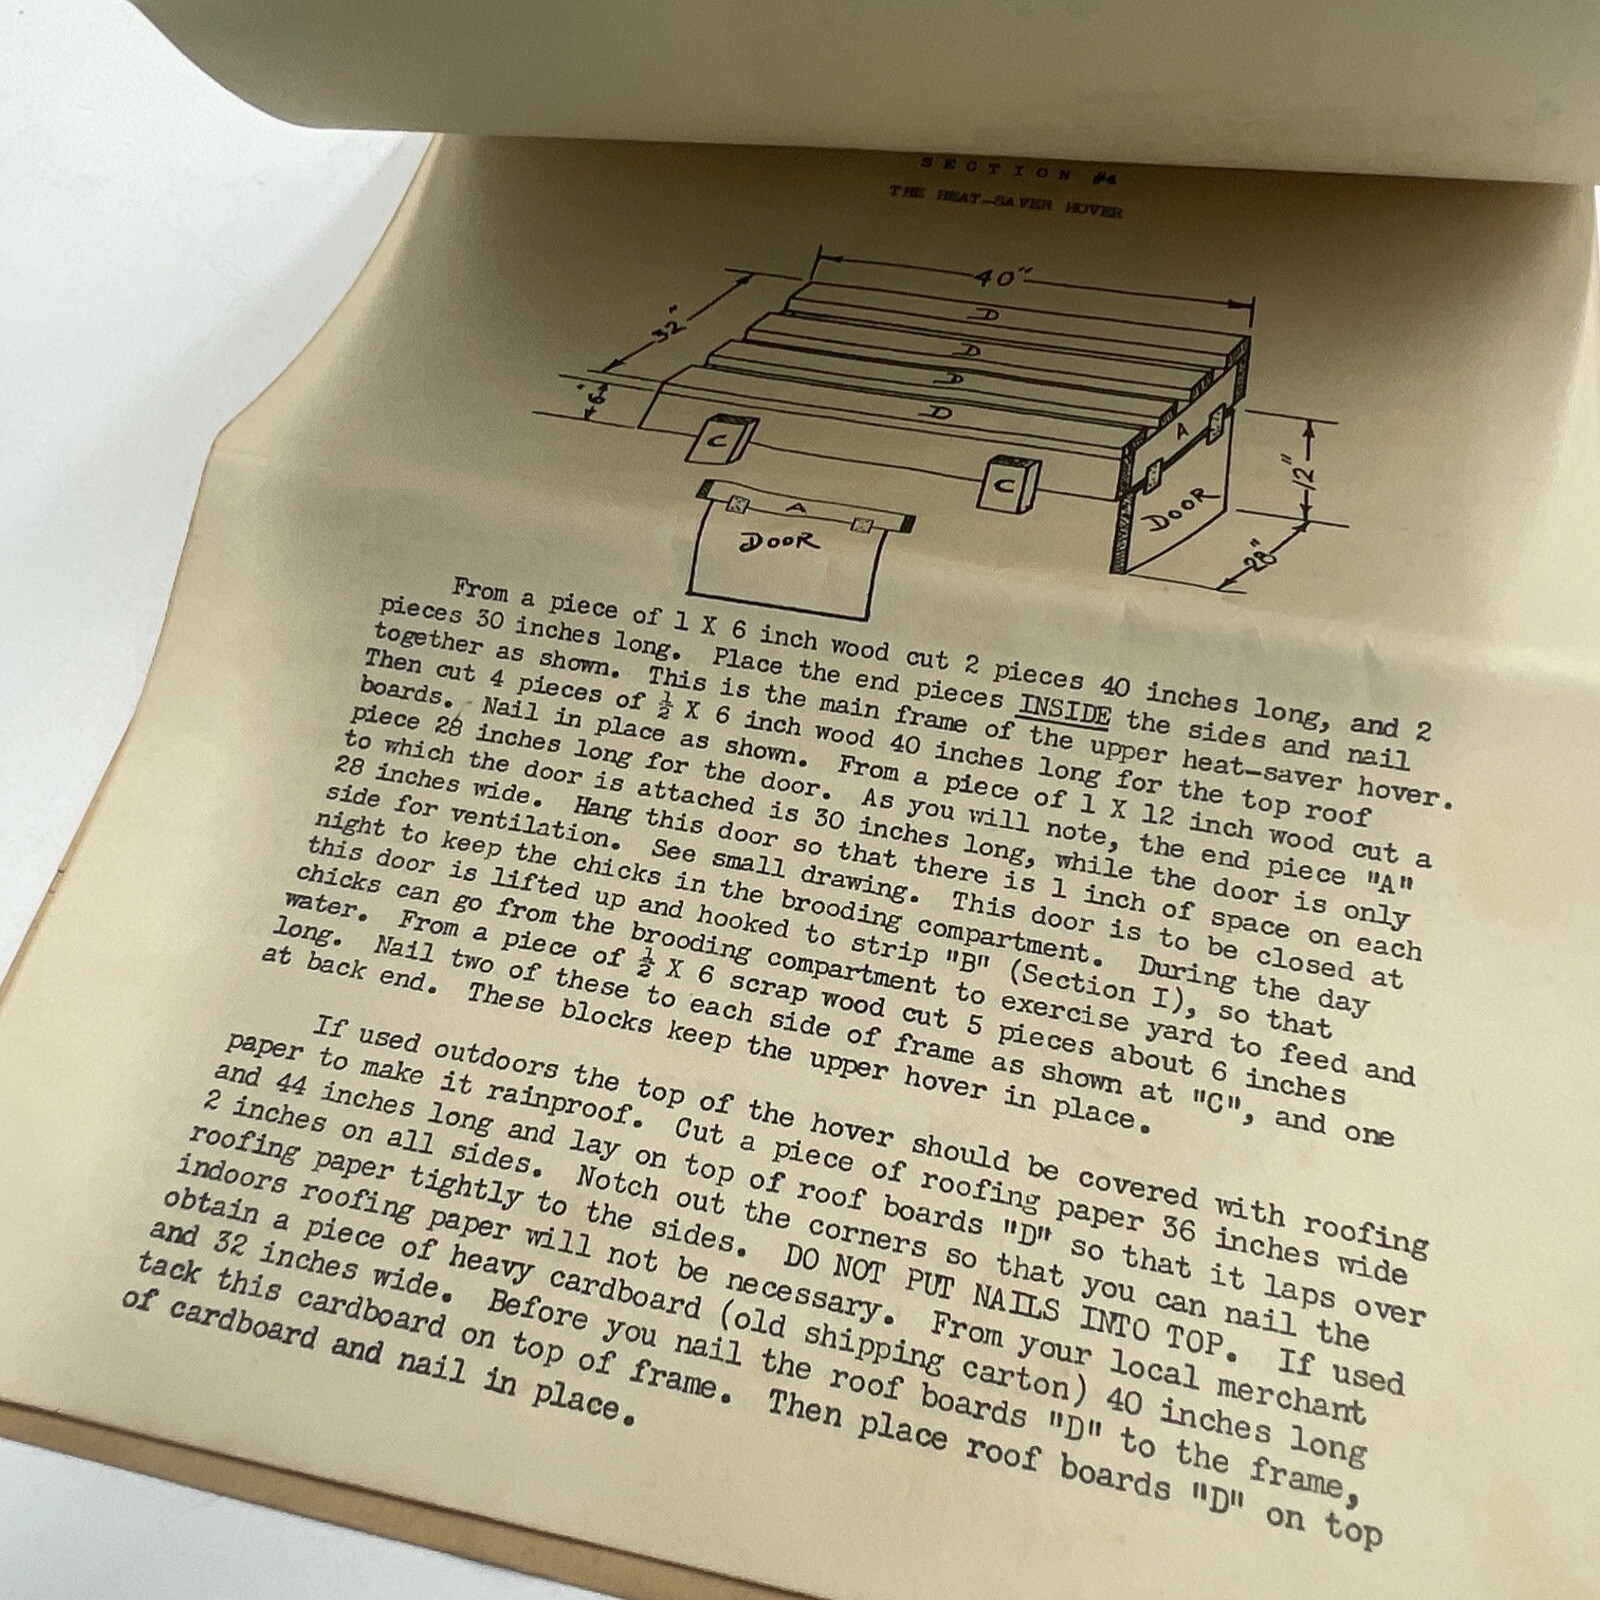 SECTION #4
THE HEAT-SAVER HOVER
40"
32"
6"
D
D
D
D
C
C
A
DOOR
12"
28"
A
DOOR
From a piece of 1 X 6 inch wood cut 2 pieces 40 inches long, and 2
pieces 30 inches long. Place the end pieces INSIDE the sides and nail
together as shown. This is the main frame of the upper heat-saver hover.
Then cut 4 pieces of ½ X 6 inch wood 40 inches long for the top roof
boards. Nail in place as shown. From a piece of 1 X 12 inch wood cut a
piece 28 inches long for the door. As you will note, the end piece "A"
to which the door is attached is 30 inches long, while the door is only
28 inches wide. Hang this door so that there is 1 inch of space on each
side for ventilation. See small drawing. This door is to be closed at
night to keep the chicks in the brooding compartment. During the day
this door is lifted up and hooked to strip "B" (Section I), so that
chicks can go from the brooding compartment to exercise yard to feed and
water. From a piece of ½ X 6 scrap wood cut 5 pieces about 6 inches
long. Nail two of these to each side of frame as shown at "C", and one
at back end. These blocks keep the upper hover in place.
If used outdoors the top of the hover should be covered with roofing
paper to make it rainproof. Cut a piece of roofing paper 36 inches wide
and 44 inches long and lay on top of roof boards "D" so that it laps over
2 inches on all sides. Notch out the corners so that you can nail the
roofing paper tightly to the sides. DO NOT PUT NAILS INTO TOP. If used
indoors roofing paper will not be necessary. From your local merchant
obtain a piece of heavy cardboard (old shipping carton) 40 inches long
and 32 inches wide. Before you nail the roof boards "D" to the frame,
tack this cardboard on top of frame. Then place roof boards "D" on top
of cardboard and nail in place.